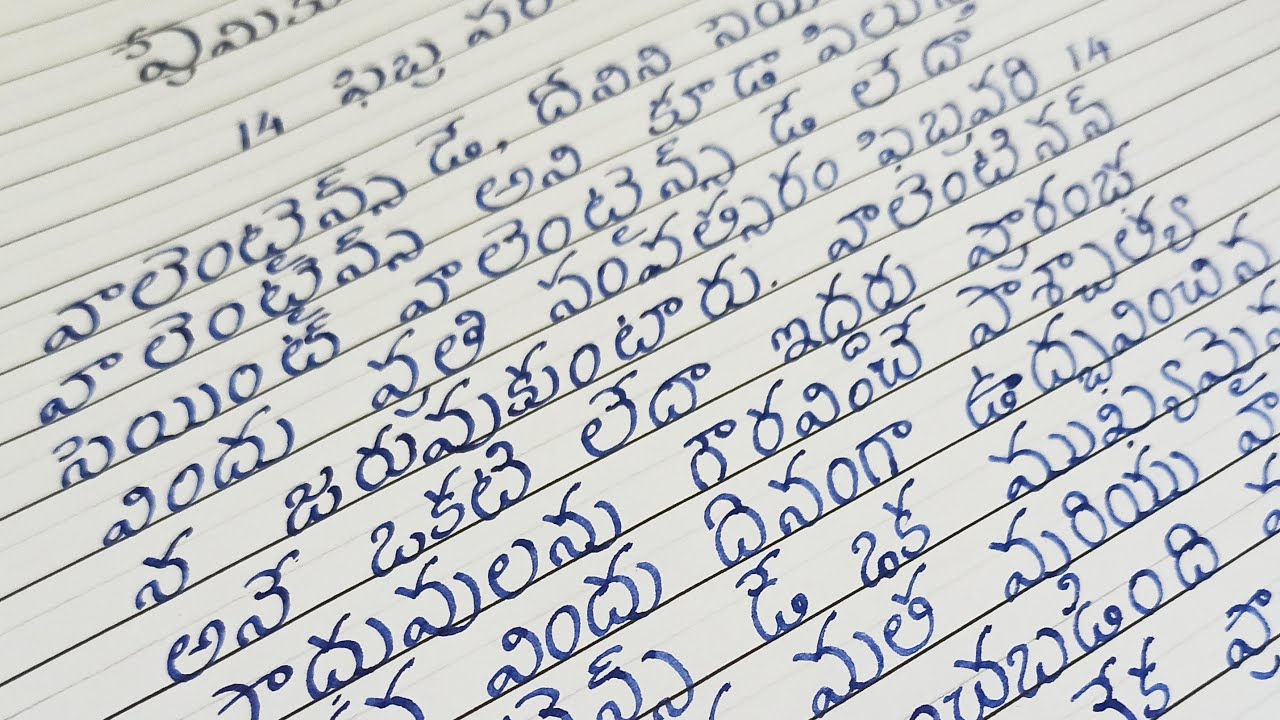 ప్రేమికు
14 ఫిబ్ర వరి
వాలెంటైన్స్ డే, దీనిని సెయి
వాలెంటైన్స్ అని కూడా పిలు
సెయింట్ వాలెంటైన్స్ డే లేదా
విందు ప్రతి సంవత్సరం ఫిబ్రవరి 14
న జరుపుకుంటారు. వాలెంటినస్
అనే ఒకటి లేదా ఇద్దరు ప్రారంభ
సాధువులను గౌరవించే పాశ్చాత్య
విందు దినంగా ఉద్భవించిన
టైన్స్ డే ఒక ముఖ్యమైన
మత మరియు వా
చబడింది